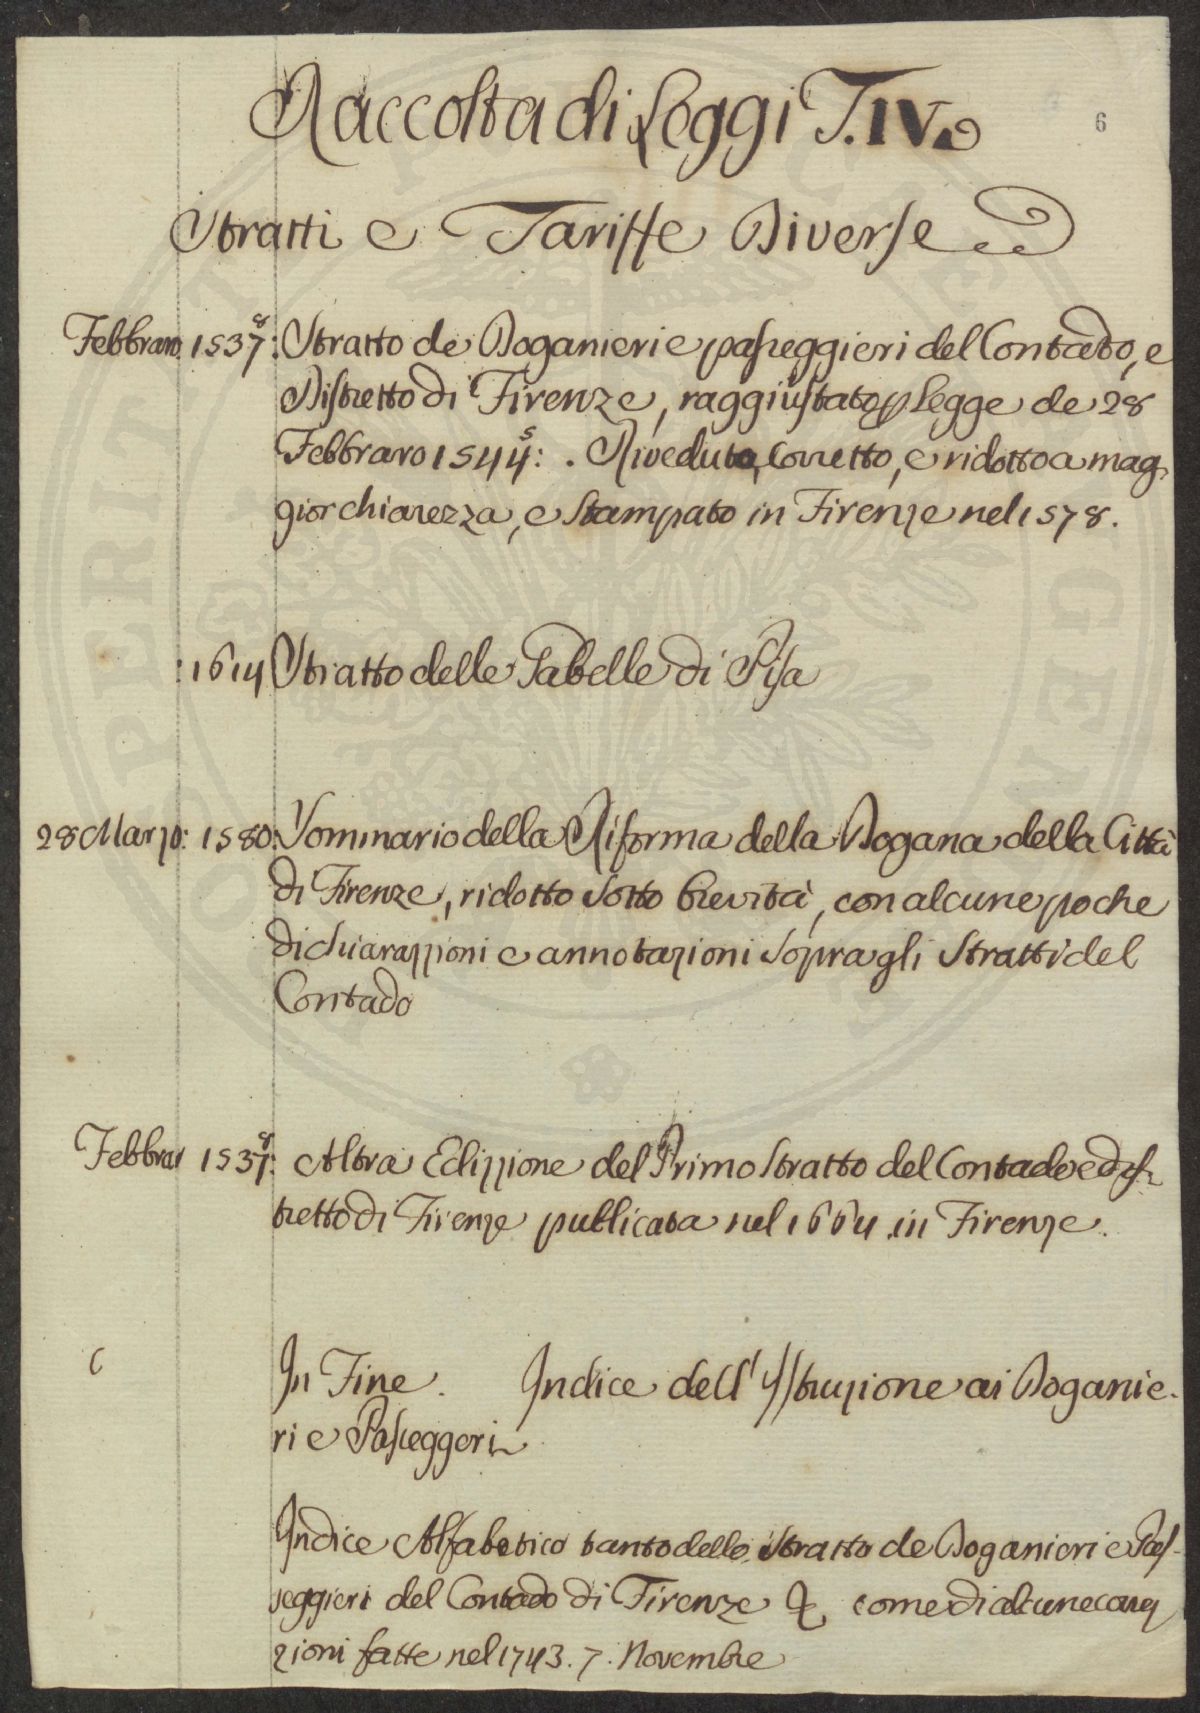 Raccolta di Leggi T. IV.
6
Stratti e Tariffe Diverse
Febbraro 1537/8: Stratto de Doganieri e passeggieri del Contado, e
Distretto di Firenze, raggiustato p Legge de 28
Febbraro 1544/5: . Riveduto, Corretto, e ridotto a mag
gior chiarezza, e stampato in Firenze nel 1578.
:1614 Stratto delle Tabelle di Pisa
28 Marzo: 1580: Sommario della Riforma della Dogana della Città
di Firenze, ridotto sotto brevità, con alcune poche
dichiarazzioni e annotazioni sopra gli Stratti del
Contado
Febbrar 1537/8: Altra Edizzione del Primo Stratto del Contado e Dis
tretto di Firenze publicata nel 1664 in Firenze.
In Fine. Indice dell'Istruzione ai Doganie-
ri e Passeggeri
Indice Alfabetico tanto dello Stratto de Doganieri e Pas-
seggieri del Contado di Firenze & come di alcune
zioni fatte nel 1743. 7. Novembre
OSPERITE